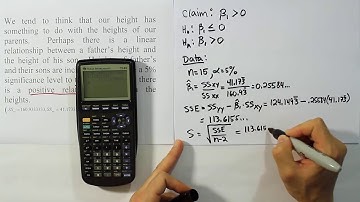 We tend to think that our height has
something to do with the heights of our
parents. Perhaps there is a linear
relationship between a father's height and
the height of his son.
and their sons are
significance level
there is a positive
heights.
Claim: β₁ > 0
H₀: β₁ ≤ 0
H₁: β₁ > 0
Data:
n=15, α=5%
β̂₁ = SSxy / SSxx = 41.173 / 160.93 = 0.25584...
SSE = SSyy - β̂₁·SSxy = 124.1493 - .2558(41.173)
= 113.6155...
S = √SSE/n-2 = 113.615